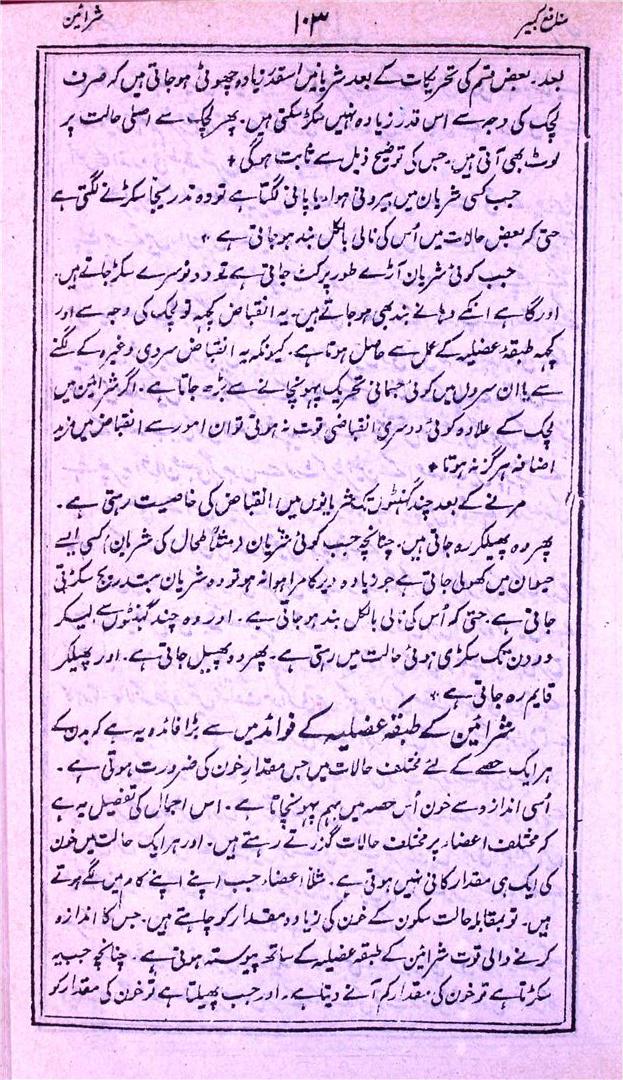 منافع کبیر ۱۰۳ شرائین
بعد۔ بعض قسم کی تحریکات کے بعد شریانیں اسقدر زیادہ چھوٹی ہوجاتی ہیں کہ صرف
لچک کی وجہ سے اس قدر زیادہ نہیں سکڑ سکتی ہیں۔ پھر لچک سے اصلی حالت پر
لوٹ بھی آتی ہیں۔ جس کی توضیح ذیل سے ثابت ہوگی ؞
جب کسی شریان میں بیرونی ہوا۔ یا پانی لگتا ہے تو وہ تدریجاً سکڑنے لگتی ہے
حتی کہ بعض حالات میں اُس کی نالی بالکل بند ہوجاتی ہے ؞
جب کوئی شریان آڑے طور پر کٹ جاتی ہے تو دونوں سرے سکڑ جاتے ہیں۔
اور گاہے انکے دہانے بند بھی ہوجاتے ہیں۔ یہ انقباض کچھ تو لچک کی وجہ سے اور
کچھ طبقۂ عضلیہ کے عمل سے حاصل ہوتا ہے۔ کیونکہ یہ انقباض سردی وغیرہ کے لگنے
سے یا ان سروں میں کوئی جسمانی تحریک پہونچانے سے بڑھ جاتا ہے۔ اگر شرائین میں
لچک کے علاوہ کوئی دوسری انقباضی قوت نہ ہوتی تو ان امور سے انقباض میں مزید
اضافہ ہرگز نہ ہوتا ؞
مرنے کے بعد چند گھنٹوں تک شریانوں میں انقباض کی خاصیت رہتی ہے۔
پھر وہ پھیلکر رہ جاتی ہیں۔ چنانچہ جب کوئی شریان (مثلاً طحال کی شریان) کسی ایسے
حیوان میں کھولی جاتی ہے جو زیادہ دیر کا مرا ہوا نہ ہو تو وہ شریان بتدریج سکڑتی
جاتی ہے۔ حتی کہ اُس کی نالی بالکل بند ہوجاتی ہے۔ اور وہ چند گھنٹوں سے لیکر
دو دن تک سکڑی ہوئی حالت میں رہتی ہے۔ پھر وہ پھیل جاتی ہے۔ اور پھیلکر
قایم رہ جاتی ہے ؞
شرائین کے طبقۂ عضلیہ کے فوائد میں سے بڑا فائدہ یہ ہے کہ بدن کے
ہر ایک حصے کے لئے مختلف حالات میں جس مقدار خون کی ضرورت ہوتی ہے۔
اُسی اندازہ سے خون اُس حصہ میں بہم پہونچاتا ہے۔ اس اجمال کی تفصیل یہ ہے
کہ مختلف اعضاء پر مختلف حالات گذرتے رہتے ہیں۔ اور ہر ایک حالت میں خون
کی ایک ہی مقدار کافی نہیں ہوتی ہے۔ مثلاً اعضاء جب اپنے اپنے کام میں لگے ہوتے
ہیں۔ تو بمقابلہ حالت سکون کے خون کی زیادہ مقدار کو چاہتے ہیں۔ جس کا اندازہ
کرنے والی قوت شرائین کے طبقہ عضلیہ کے ساتھ پیوستہ ہوتی ہے۔ چنانچہ جب یہ
سکڑتا ہے تو خون کی مقدار کم آنے دیتا ہے۔ اور جب پھیلتا ہے تو خون کی مقدار کو